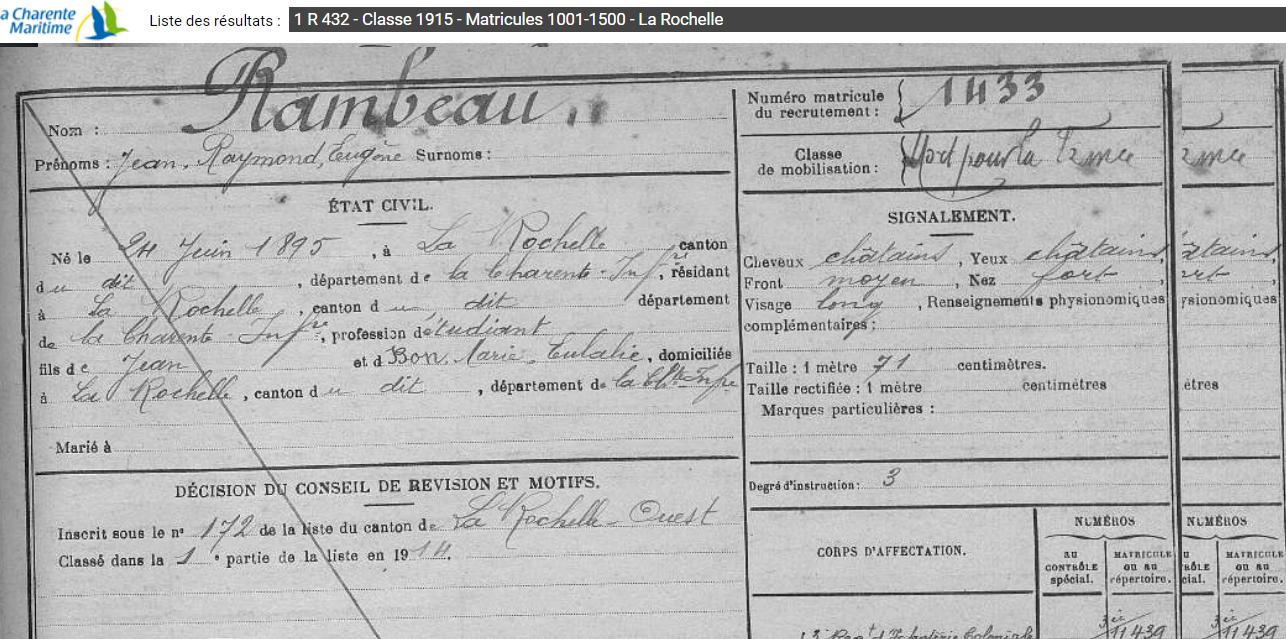 la Charente
Maritime
Liste des résultats : 1 R 432 - Classe 1915 - Matricules 1001-1500 - La Rochelle
Nom : Rambeau
Prénoms : Jean, Raymond, Eugène Surnoms :
Numéro matricule
du recrutement : 1433
Classe
de mobilisation : Mort pour la France
ÉTAT CIVIL.
Né le 24 Juin 1895, à La Rochelle canton
du dit, département de la Charente-Infre, résidant
à La Rochelle, canton du dit département
de la Charente-Infre, profession d'étudiant
fils de Jean et d Bon, Marie-Eulalie, domiciliés
à La Rochelle, canton du dit, département de la Chte Infre
Marié à
SIGNALEMENT.
Cheveux châtains, Yeux châtains,
Front moyen, Nez fort,
Visage long, Renseignements physionomiques
complémentaires :
Taille : 1 mètre 71 centimètres.
Taille rectifiée : 1 mètre centimètres
Marques particulières :
Degré d'instruction : 3
DÉCISION DU CONSEIL DE REVISION ET MOTIFS.
Inscrit sous le no 172 de la liste du canton de La Rochelle-Ouest
Classé dans la 1e partie de la liste en 1914.
CORPS D'AFFECTATION.
NUMÉROS
AU
CONTRÔLE
spécial.
MATRICULE
ou au
répertoire.
3e Regt d'Infanterie Coloniale
11439
mce
âtains,
rt,
ysionomiques
ètres
NUMÉROS
U
RÔLE
cial.
MATRICULE
ou au
répertoire.
11439